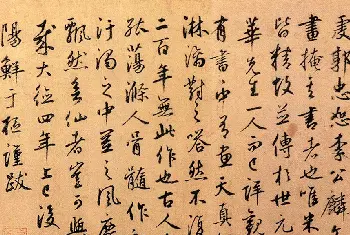 虔郭忠恕李公麟
畫掩其書者也唯米
皆精故並傳於世元
華先生一人而已詳觀
有書中有畫天真
淋漓對之嗒然不復
二百年無此作也古人
張蕩滌人骨髓作
汙濁之中置之風塵
飄然仙者豈可與
大德四年上巳後
陽鮮于樞謹跋